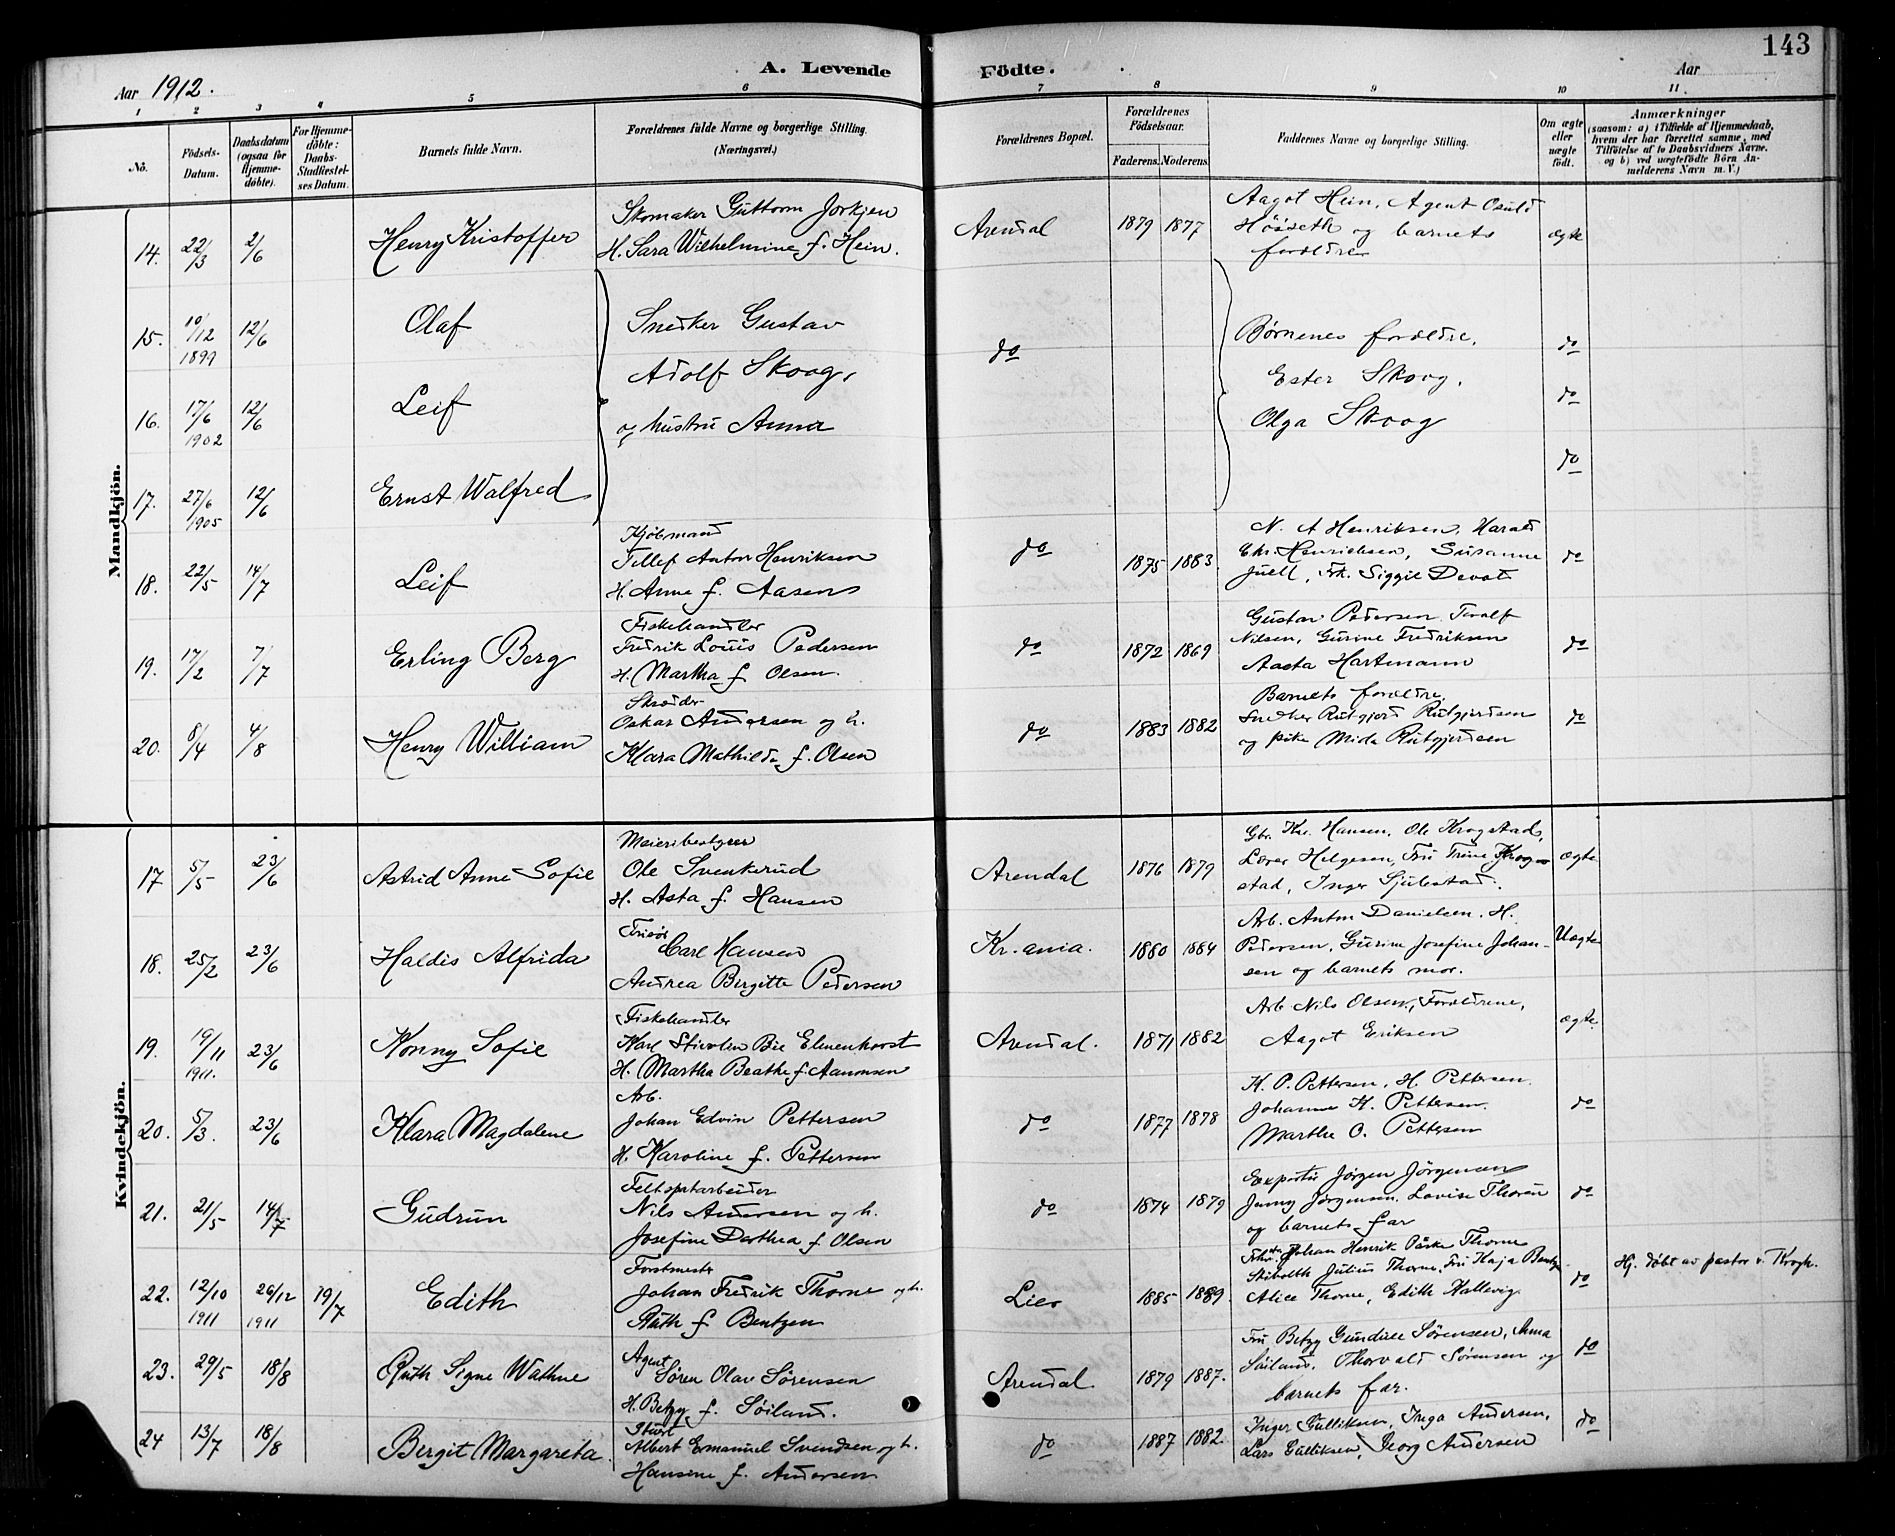 143
A. Levende Födte.
Aar 1912.
Aar
1 2 3 4 5 6 7 8 9 10 11.
No.
Födsels-Datum.
Daabsdatum (ogsaa for Hjemmedöbte).
For Hjemmedöbte: Daabs-Stadfæstelses Datum.
Barnets fulde Navn.
Forældrenes fulde Navne og borgerlige Stilling. (Næringsvei.)
Forældrenes Bopæl.
Forældrenes Födselsaar.
Faderens. Moderens.
Faddernes Navne og borgerlige Stilling.
Om ægte eller uægte födt.
Anmærkninger
(saasom: a) i Tilfælde af Hjemmedaab, hvem der har forrettet samme, med Tilföielse af to Daabsvidners Navne. og b) ved uægtefödte Börn Anmelderens Navn m. V.)
Mandkjön.
14. 22/3 2/6 Henry Kristoffer
Skomaker Guttorm Jorkjen
H. Sara Wilhelmine f. Hein.
Arendal 1879 1877
Aagot Hein, Agent Osuld
Höiseth og barnets
foreldre
ægte
15. 10/12 1899 12/6 Olaf
16. 17/6 1902 12/6 Leif
17. 27/6 1905 12/6 Ernst Walfred
Snedker Gustav
Adolf Skoog,
og hustru Anna
do
Børnenes foreldre.
Ester Skoog.
Olga Skoog
do
do
do
18. 22/5 14/7 Leif
Kjöbmand
Tellef Anton Henriksen
H. Anne f. Aasen
do 1875 1883
N. A Henriksen, Harald
Chr. Henriksen, Susanne
Juell, Frk.
do
19. 17/2 7/7 Erling Berg
Fiskehandler
Fredrik Louis Pedersen
H. Martha f Olsen.
do 1872 1869
Gustav Pedersen, Toralf
Nilsen, Gurine Fredriksen
Aasta Hartmann
do
20. 8/4 4/8 Henry William
Skrædder
Oskar Andersen og h.
Klara Mathilde f. Olsen
do 1883 1882
Barnets foreldre.
Snedker Rutgjerd Rutgjerdsen
og pike Mida Rutgjerdsen
do
Kvindekjön.
17 5/5 23/6 Astrid Anne Sofie
Meieribestyrer
Ole Svenkerud
H. Asta f. Hansen
Arendal 1876 1879
Gbr. Kr. Hansen, Ole Krogstad,
Lærer Helgesen, Fru Trine Krog-
stad, Inger Sjulestad.
ægte
18. 25/2 23/6 Haldis Alfrida
Frisör
Carl Hansen
Andrea Bergitte Pedersen
Kr.ania. 1880 1884
Arb. Anton Danielsen. H.
Pedersen, Gurine Josefine Johan-
sen og barnets mor.
Uægte
19. 19/11 1911. 23/6 Konny Sofie
Fiskehandler
Karl Bie Elmenhorst
H. Martha Beathe f. Aanonsen
Arendal. 1871 1882
Arb Nils Olsen, Foreldrene,
Aagot Eriksen
ægte
20. 5/3. 23/6 Klara Magdalene
Arb.
Johan Edvin Pettersen
H. Karoline f. Pettersen
do 1877 1878
K. P. Pettersen, H. Pettersen
Johanne K. Pettersen.
Marthe O. Pettersen
do
21. 21/5 14/7 Gudrun
Feltspatarbeider
Nils Andersen og h.
Josefine Dorthea f Olsen
do 1874 1879
Expeditör Jörgen Jörgensen
Jenny Jörgensen. Lovise Thoren
og barnets far
do
22. 12/10 1911 26/12 1911 19/7 Edith
Forstmester
Johan Fredrik Thorne og h.
Ruth f Bentzen
Lier 1885 1889
Johan Henrik Thorne
Julius Thorne, Fru Kaja Bentzen
Alice Thorne, Edith Hallevig
do
Hj. döbt av pastor v. Krogh.
23. 29/5 18/8 Ruth Signe Wathne
Agent
Sören Olav Sörensen
H. Betzy f. Söiland.
Arendal 1879 1887.
Fru Betzy Gundille Sörensen, Anna
Söiland, Thorvald Sörensen og
barnets far.
do
24 13/7 18/8 Bergit Margareta.
Stuert
Albert Emanuel Svendsen og h.
Hansine f. Andersen
do 1887 1882.
Inger Gulliksen, Inga Andersen,
Lars Gulliksen, Georg Andersen
do